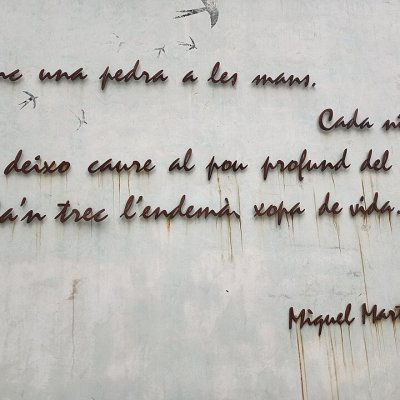 nc una pedra a les mans.
Cada ni
deixo caure al pou profund del
a'n trec l'endemà, xopa de vida.
Miquel Mart